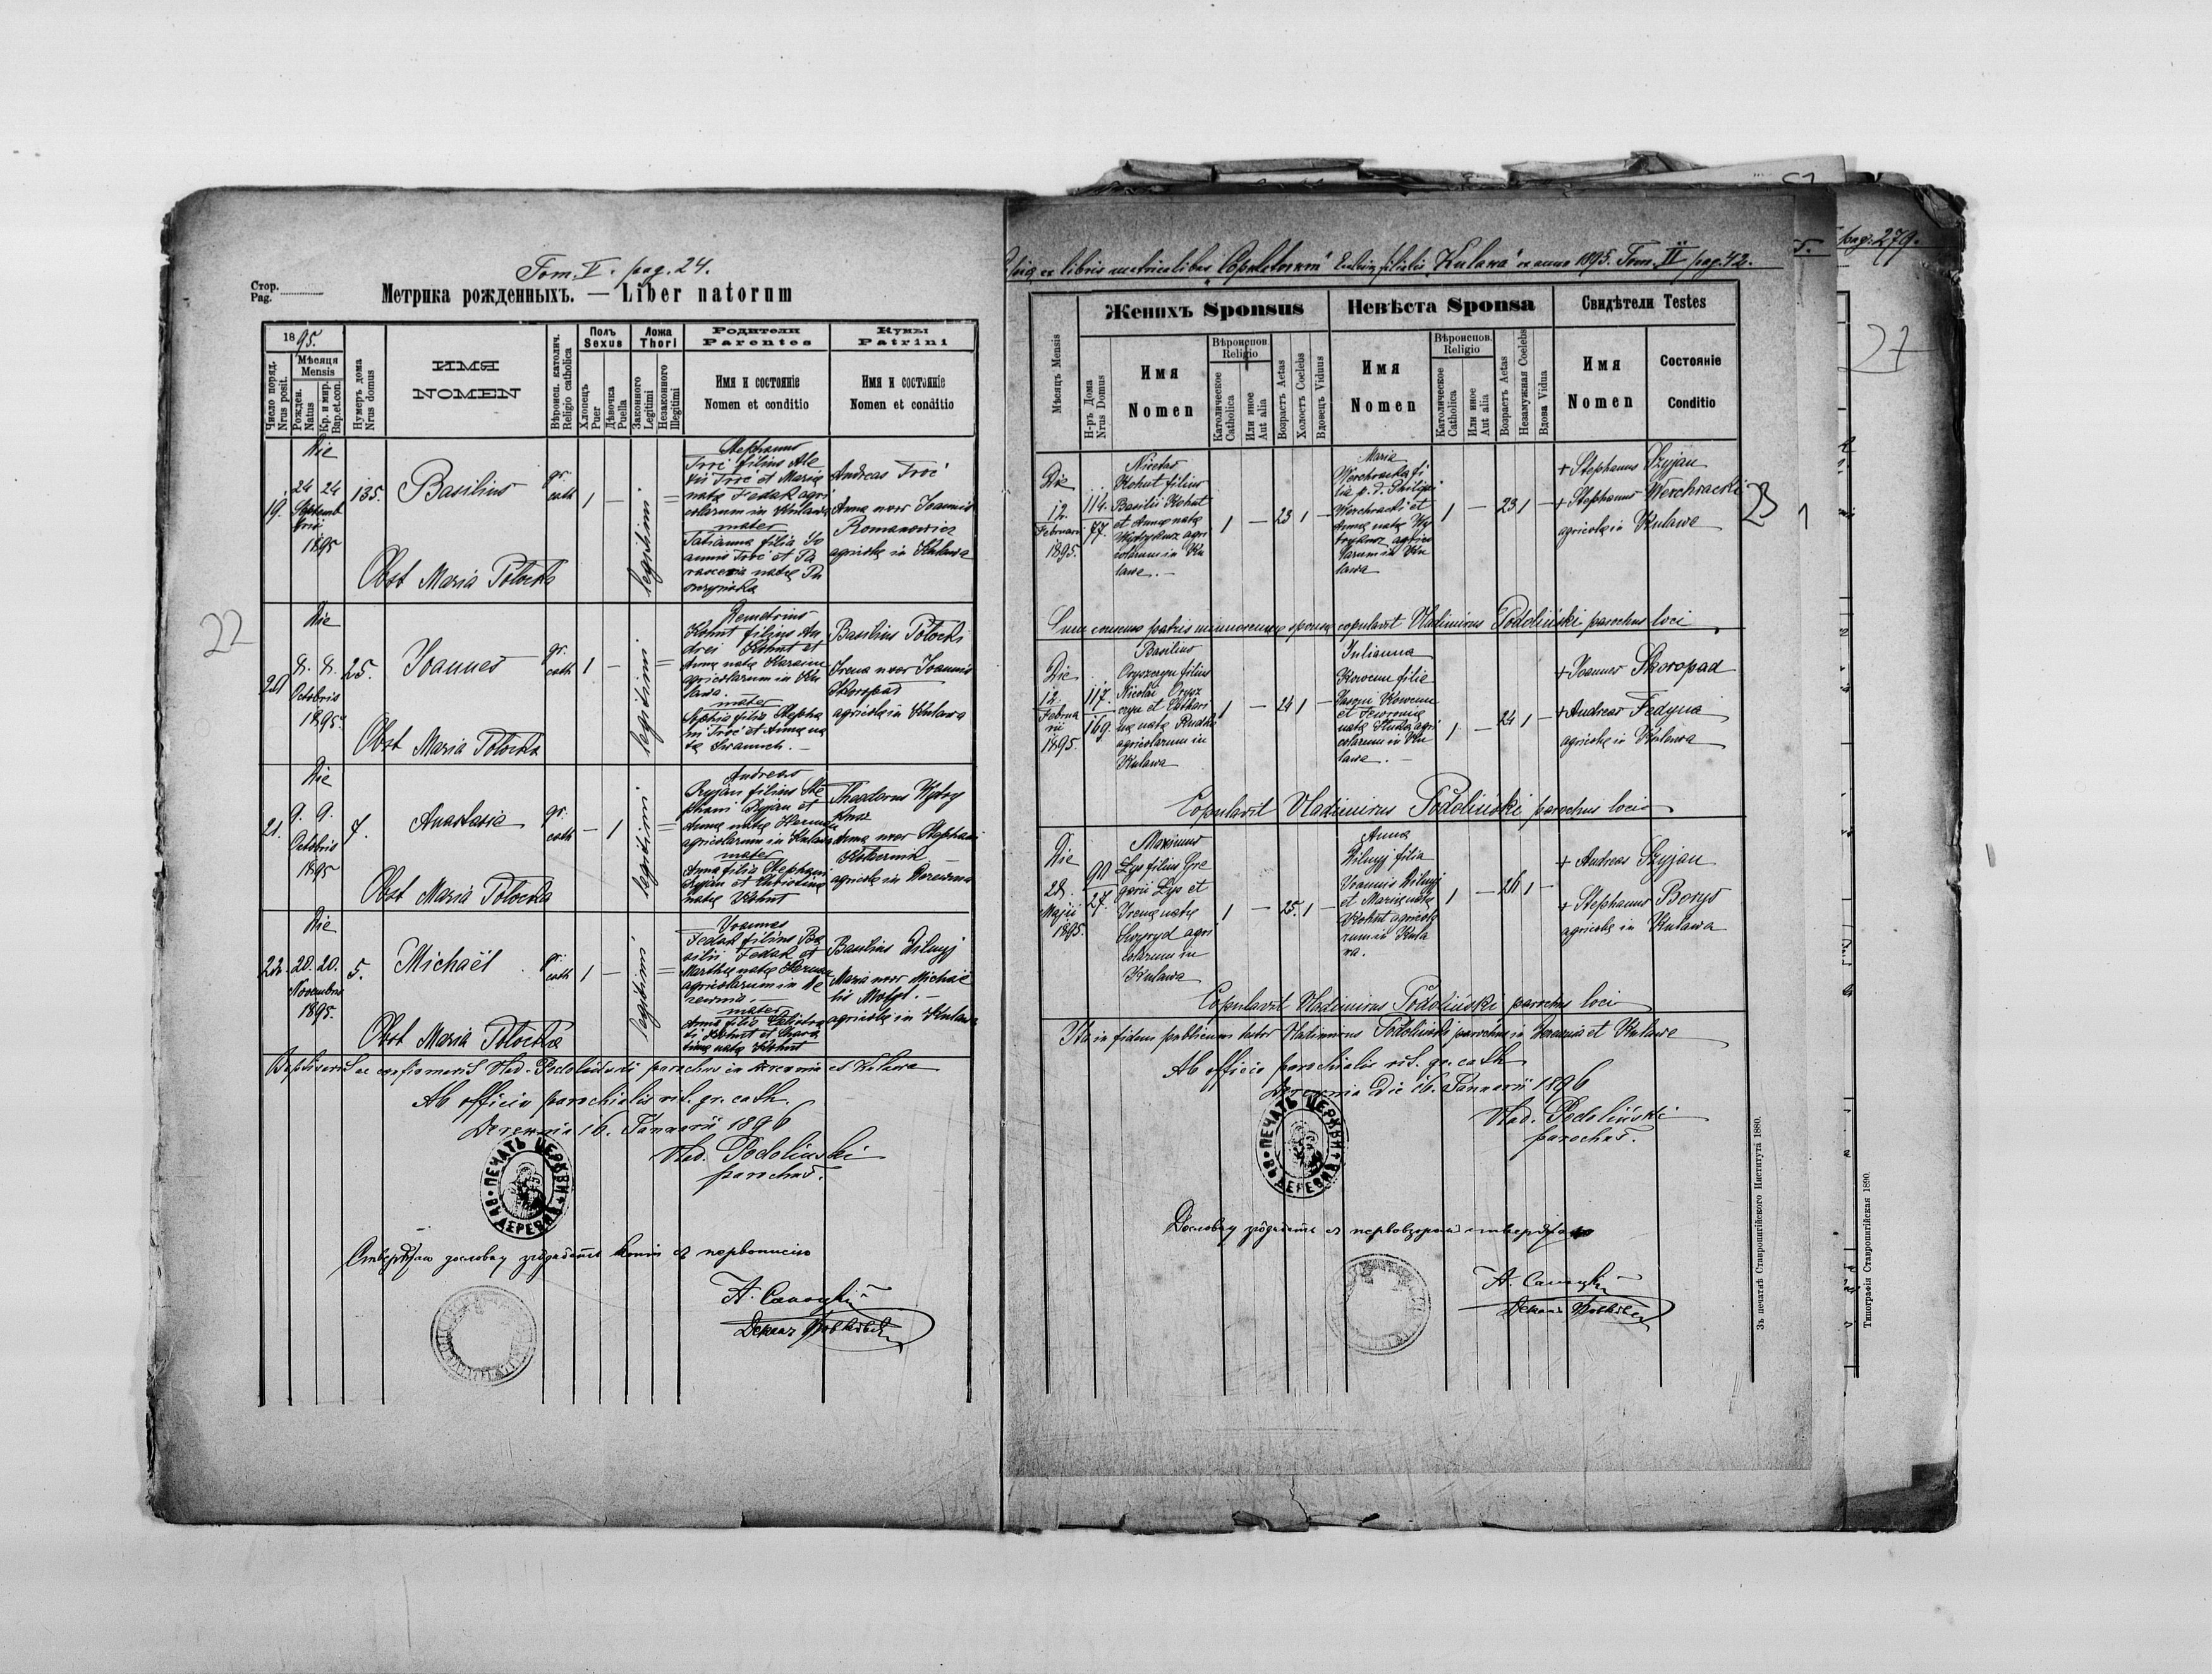 Tom. V. pag. 24.
Стор.
Pag.
Метрика рожденныхъ. — Liber natorum
1895.
Число поряд.
Nrus posit.
Мѣсяця
Mensis
Рожден.
Natus
Кр. и мир.
Bap. et con.
Нумеръ дома
Nrus domus
ИМЯ
NOMEN
Вѣроисп. католич.
Religio catholica
Полъ
Sexus
Хлопецъ
Puer
Дѣвочка
Puella
Ложа
Thori
Законного
Legitimi
Незаконного
Illegitimi
Родители
Parentes
Имя и состояніе
Nomen et conditio
Кумы
Patrini
Имя и состояніе
Nomen et conditio
19.
Die
24 24
Septemb
bris
1895
135.
Basilius
gr.
cath
1
—
legitimi
=
Stephanus
Troć filius Ale
xii Troć et Mariæ
natæ Fedak agri
colarum in Kulawa
mater
Tatianna filia Jo
annis Troć et Pa
rasceviæ natæ
Andreas Troć
Anna uxor Joannis
Romanowicz
agricolæ in Kulawa
Obst Maria Potocka
22
20
Die
8. 8.
Octobris
1895.
25.
Joannes
gr.
cath
1
—
legitimi
=
Demetrius
Kohut filius An
drei Kohut et
Annæ natæ
agricolarum in Ku
lawa.
mater
Sophia filia Stepha
ni Troć et Annæ na
tæ Iwanech. —
Basilius Potocki
Irena uxor Joannis
Skoropad
agricolæ in Kulawa
Obst Maria Potocka
21.
Die
9. 9.
Octobris
1895
7.
Anastasia
gr.
cath
—
1
legitimi
=
Andreas
Szyjan filius Ste
phani Szyjan et
Annæ natæ
agricolarum in Kulawa
mater
Anna filia Stephani
Szyjan et Christinæ
natæ Kohut
Theodorus Wytry
kusz
Anna uxor Stephani
agricolæ in Derewnia
Obst Maria Potocka
22.
Die
20. 20.
Novembris
1895.
5.
Michaël
gr.
cath
1
—
legitimi
=
Joannes
Fedak filius Ba
silii Fedak et
Marthæ natæ
agricolarum in De
rewnia. —
mater
Anna filia
Kohut et
natæ Kohut
Basilius Zilnyj
Maria uxor Michaë
lis —
agricolæ in Kulawa
Obst Maria Potocka
Baptisavit ac confirmavit Vlad. Podoliński parochus in Derewnia et Kulawa
Ab officio parochialis rit. gr. cath.
Derewnia 16. Januarii 1896
Vlad. Podoliński
parochus.
ПЕЧАТЬ ЦЕРКВИ ВЪ ДЕРЕВНИ
Ствержаю дословну згоднôсть копіи съ первописію
А. Савицкій
Деканъ Жовківскій
ex libris metricalibus "Copulatorum" Ecclesiæ filialis "Kulawa" ex anno 1895. Tom. II pag. 42.
5.
pag. 279.
27
Мѣсяць Mensis
Н-ръ Дома
Nrus Domus
Женихъ Sponsus
Имя
Nomen
Вѣроиспов.
Religio
Католическое
Catholica
Или иное
Aut alia
Возрастъ Aetas
Холостъ Coelebs
Вдовецъ Viduus
Невѣста Sponsa
Имя
Nomen
Вѣроиспов.
Religio
Католическое
Catholica
Или иное
Aut alia
Возрастъ Aetas
Незамужная Coelebs
Вдова Vidua
Свидѣтели Testes
Имя
Nomen
Состояніе
Conditio
Die
12.
Februarii
1895.
114.
77.
Nicetas
Kohut filius
Basilii Kohut
et Annæ natæ
Wytrykusz agri
colarum in Ku
lawa. —
1
—
23
1
—
Maria
Werchracka fi
lia p. d. Philippi
Werchracki et
Annæ natæ Wy
trykusz agrico
larum in Ku
lawa
1
—
23
1
—
+ Stephanus Szyjan
+ Stephanus Werchracki
agricolæ in Kulawa
23
1
Cum consensu patris minorennæ sponsæ copulavit Vladimirus Podoliński parochus loci
Die
12.
Februa
rii
1895.
117.
169.
Basilius
Oryszczyn filius
Nicolai Orysz
czyn et Cathari
næ natæ Rudka
agricolarum in
Kulawa
1
—
24
1
—
Julianna
filia
et
natæ agri
colarum in Ku
lawa. —
1
—
24
1
—
+ Joannes Skoropad
+ Andreas Fedyna
agricolæ in Kulawa
Copulavit Vladimirus Podoliński parochus loci
Die
28.
Maji
1895.
90
27.
Maximus
Lys filius Gre
gorii Lys et
Irenæ natæ
Swyryd agri
colarum in
Kulawa
1
—
25.
1
—
Anna
Zilnyj filia
Joannis Zilnyj
et Mariæ natæ
Kohut agricola
rum in Kula
wa.
1
—
26
1
—
+ Andreas Szyjan
+ Stephanus Borys
agricolæ in Kulawa
Copulavit Vladimirus Podoliński parochus loci
Ita in fidem publicam testor Vladimirus Podoliński parochus in Derewnia et Kulawa
Ab officio parochialis rit. gr. cath
Derewnia Die 16. Januarii 1896
Vlad. Podoliński
parochus.
ПЕЧАТЬ ЦЕРКВИ ВЪ ДЕРЕВНИ
Дословну згоднôсть съ первовзоромъ ствержаю
А. Савицкій
Деканъ Жовківскій
Зъ печатнѣ Ставропигійского Института 1880.
Типографія Ставропигійская 1890.